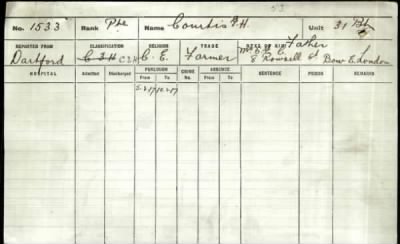 53
No. 1533 Rank Pte Name Courtis F. H. Unit 31 Bn
REPORTED FROM CLASSIFICATION RELIGION TRADE NEXT OF KIN Father
Dartford C 2 H C. E. Farmer 8 Rounsell St Bow E. London
HOSPITAL Admitted Discharged FURLOUGH From To CRIME NO. ABSENCE From To SENTENCE PERIOD REMARKS
5.2.17 10.2.17